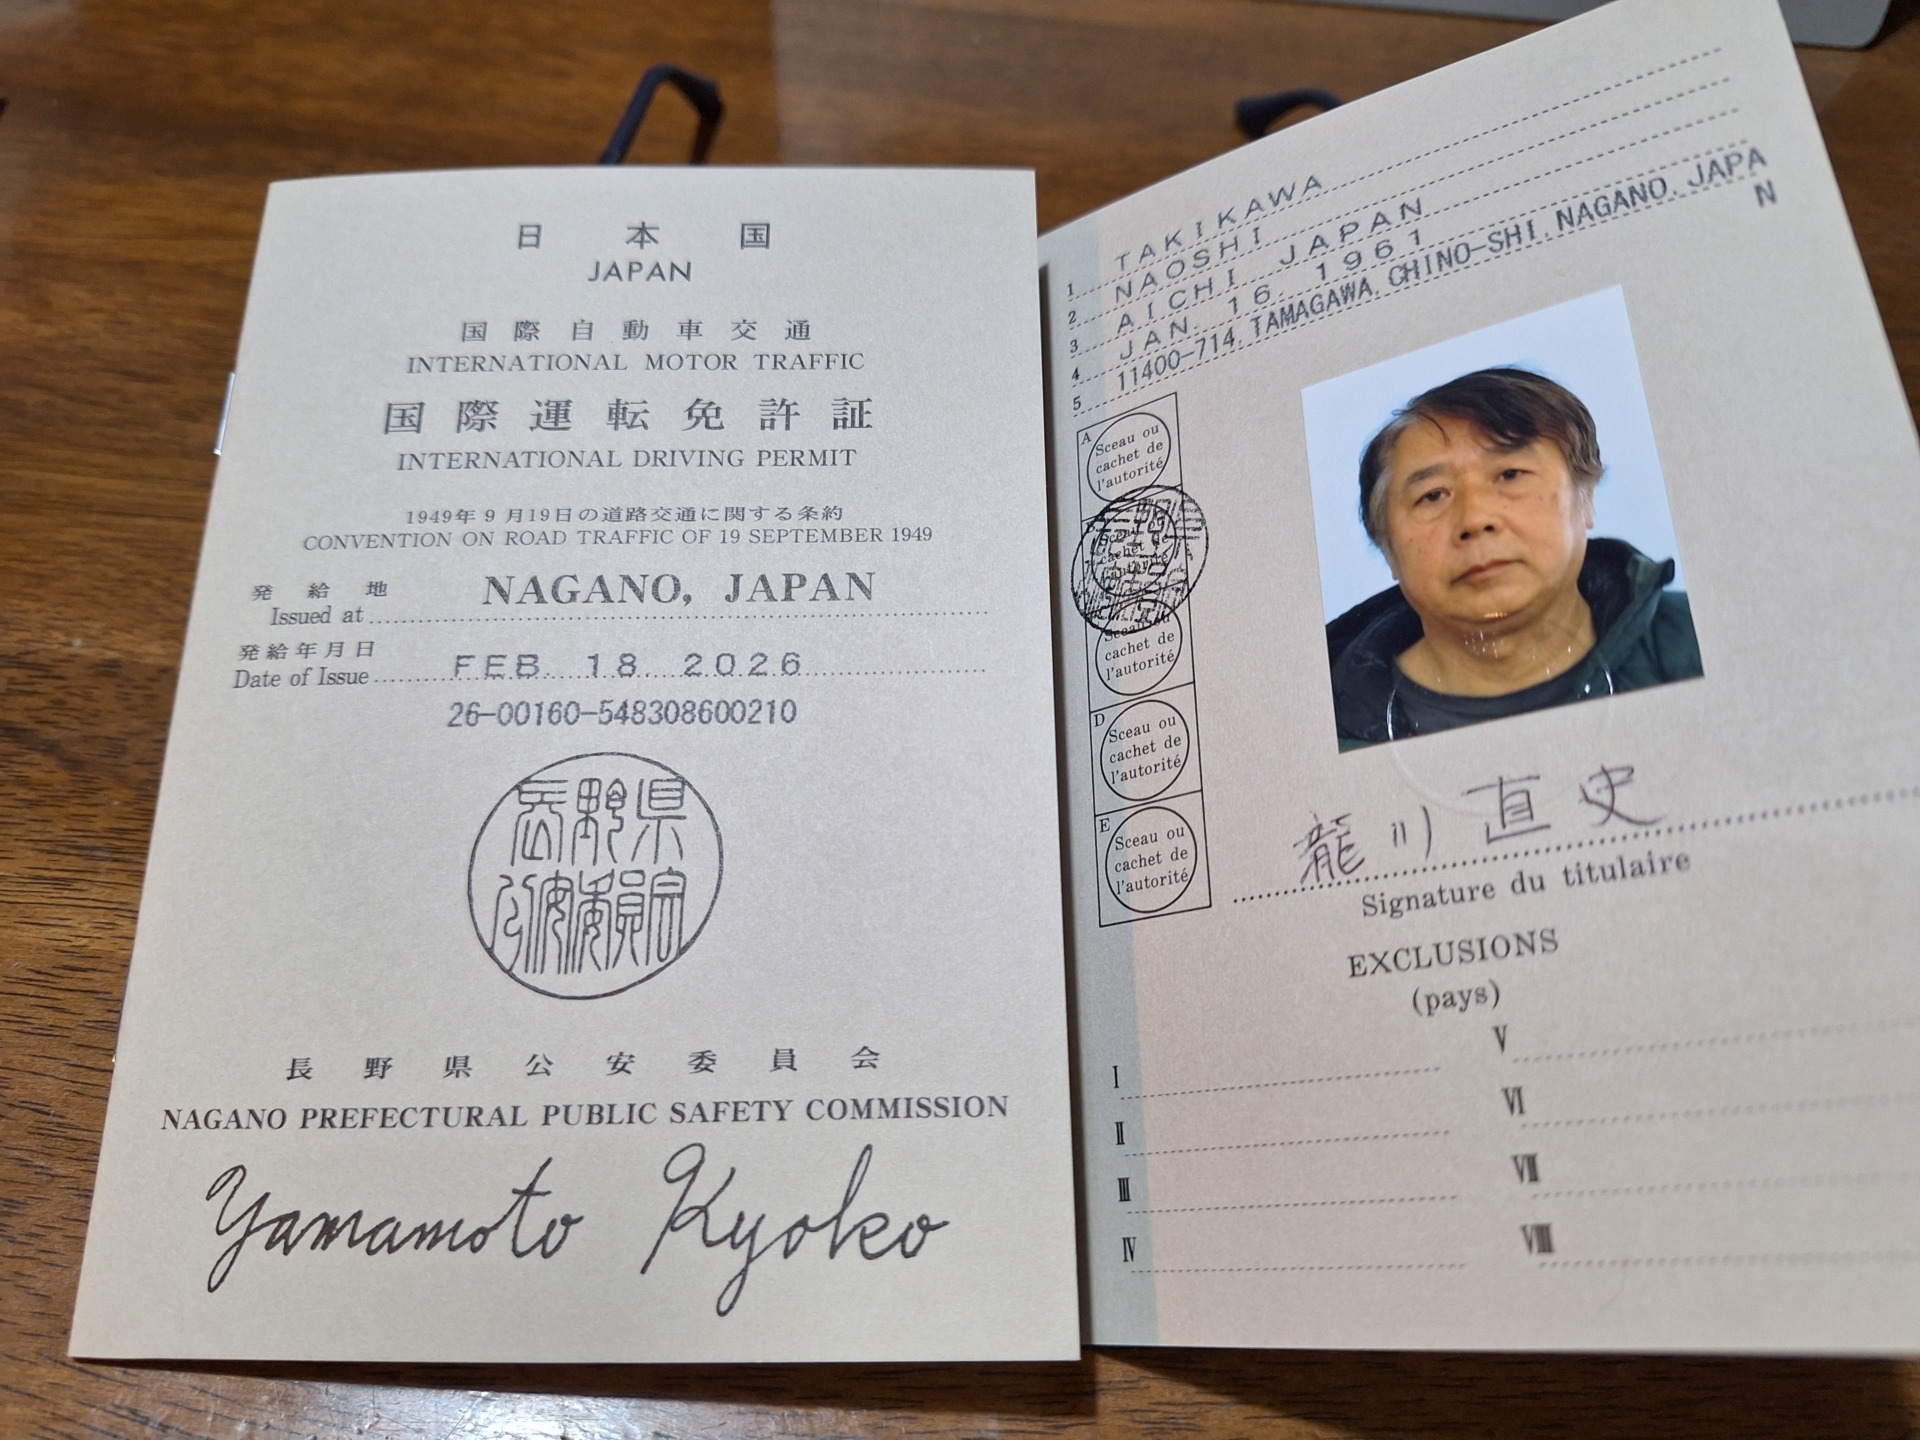 日本国
JAPAN
国際自動車交通
INTERNATIONAL MOTOR TRAFFIC
国際運転免許証
INTERNATIONAL DRIVING PERMIT
1949年9月19日の道路交通に関する条約
CONVENTION ON ROAD TRAFFIC OF 19 SEPTEMBER 1949
発給地
Issued at NAGANO, JAPAN
発給年月日
Date of Issue FEB. 18. 2026
26-00160-548308600210
長野県
公安委員会
長野県公安委員会
NAGANO PREFECTURAL PUBLIC SAFETY COMMISSION
Yamamoto Kyoko
1 TAKIKAWA
2 NAOSHI
3 AICHI JAPAN
4 JAN. 16. 1961
5 11400-714, TAMAGAWA, CHINO-SHI, NAGANO, JAPA
N
A
Sceau ou
cachet de
l'autorité
Sceau ou
cachet de
l'autorité
D
Sceau ou
cachet de
l'autorité
E
Sceau ou
cachet de
l'autorité
龍川直史
Signature du titulaire
EXCLUSIONS
(pays)
I
II
III
IV
V
VI
VII
VIII